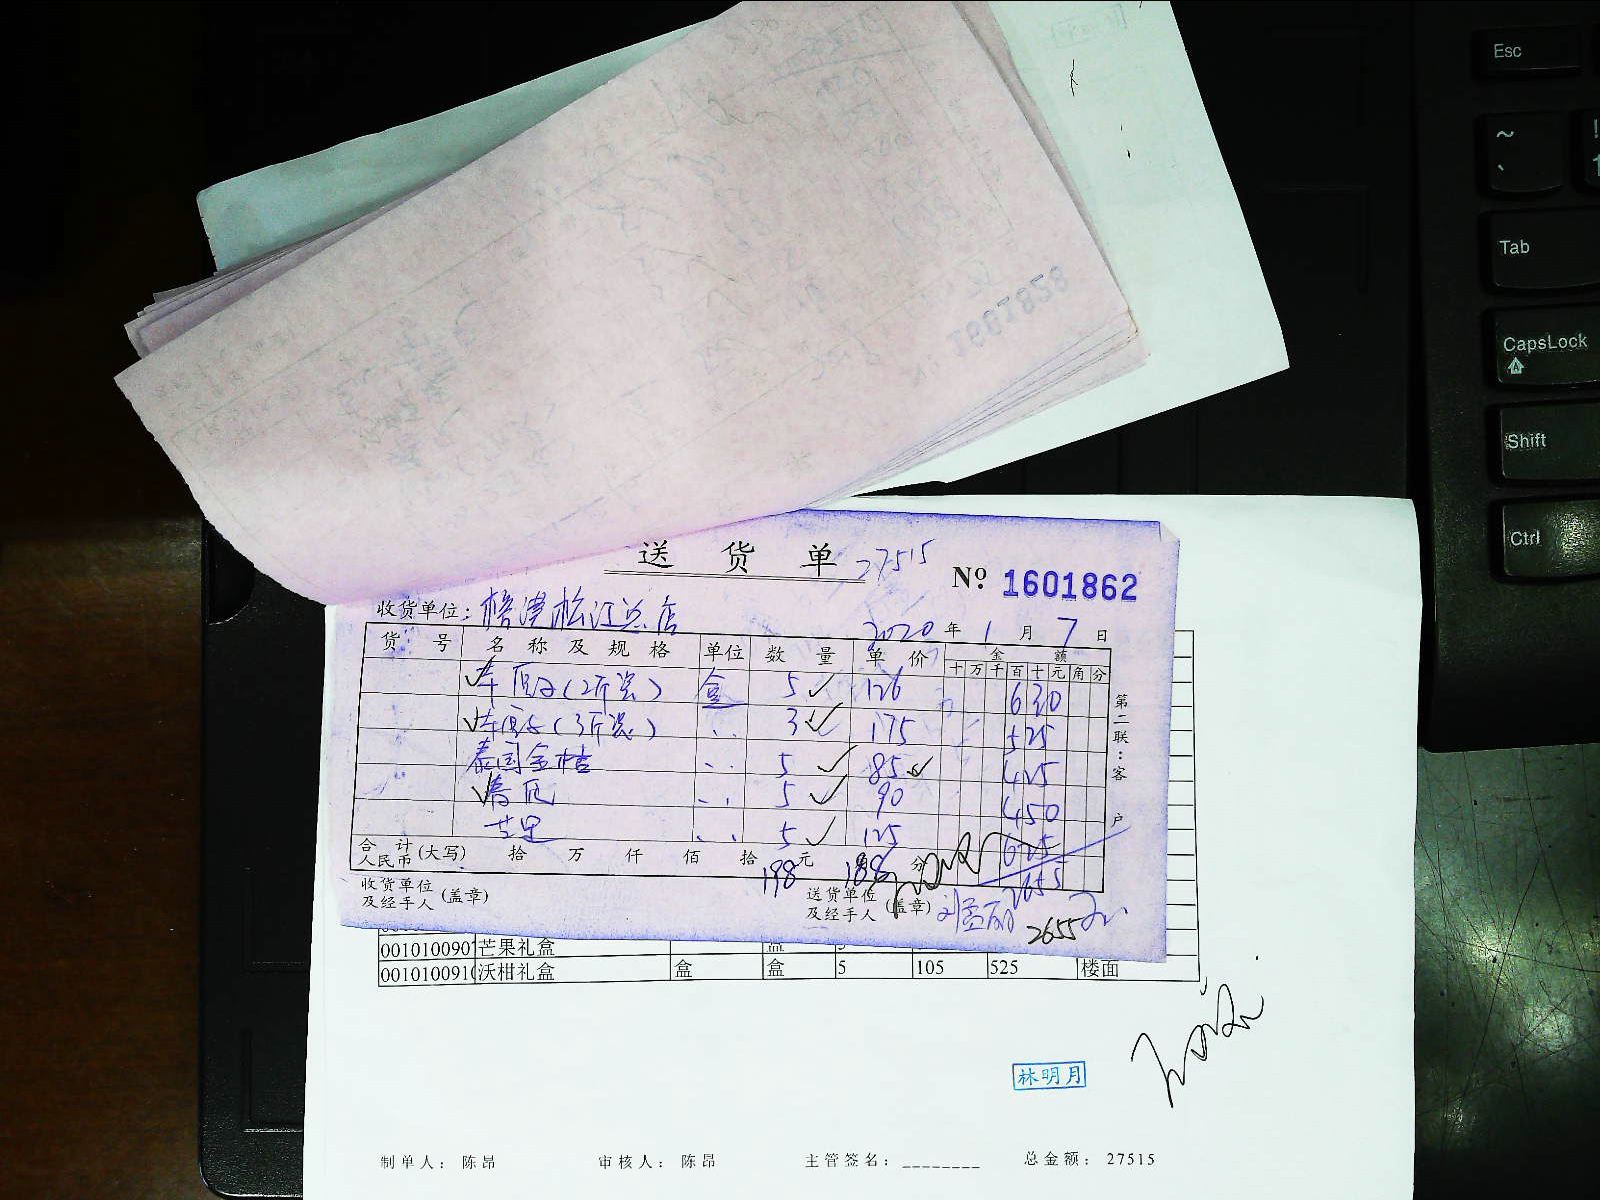 Esc
~
`
!
1
Tab
CapsLock
Shift
Ctrl
1601828
送 货 单 27515
№ 1601862
收货单位: 梧津松江总店
2020 年 1 月 7 日
货 号 名 称 及 规 格 单位 数 量 单 价 金 额
十 万 千 百 十 元 角 分
车厘子(2斤装) 盒 5 126 630
车厘子(3斤装) 〃 3 175 525
泰国金桔 〃 5 85 425
5 90 450
芒果 〃 5 125 625
合 计
人民币 (大写) 拾 万 仟 佰 拾 元 分
198 188 2655
收货单位
及经手人 (盖章)
送货单位
及经手人 (盖章)
2655
第二联:客户
001010090 芒果礼盒 盒
001010091 沃柑礼盒 盒 盒 5 105 525 楼面
林明月
制单人: 陈昂 审核人: 陈昂 主管签名: ________ 总金额: 27515